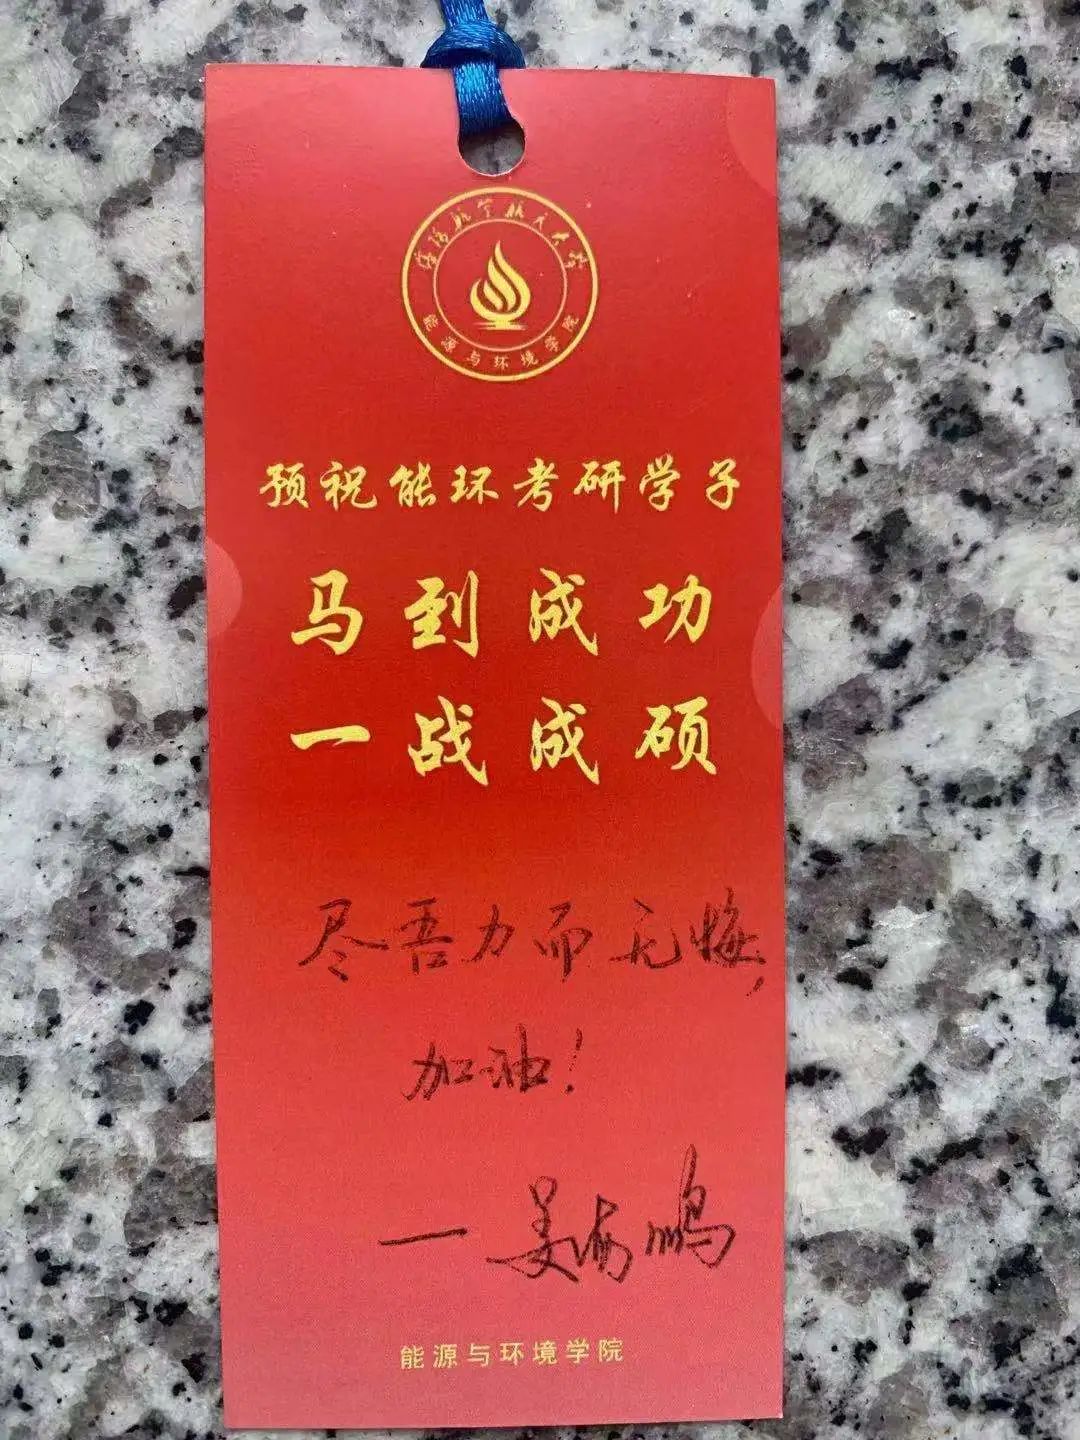 沈阳航空航天大学
能源与环境学院
预祝能环考研学子
马到成功
一战成硕
尽吾力而无悔,
加油!
一姜海鹏
能源与环境学院